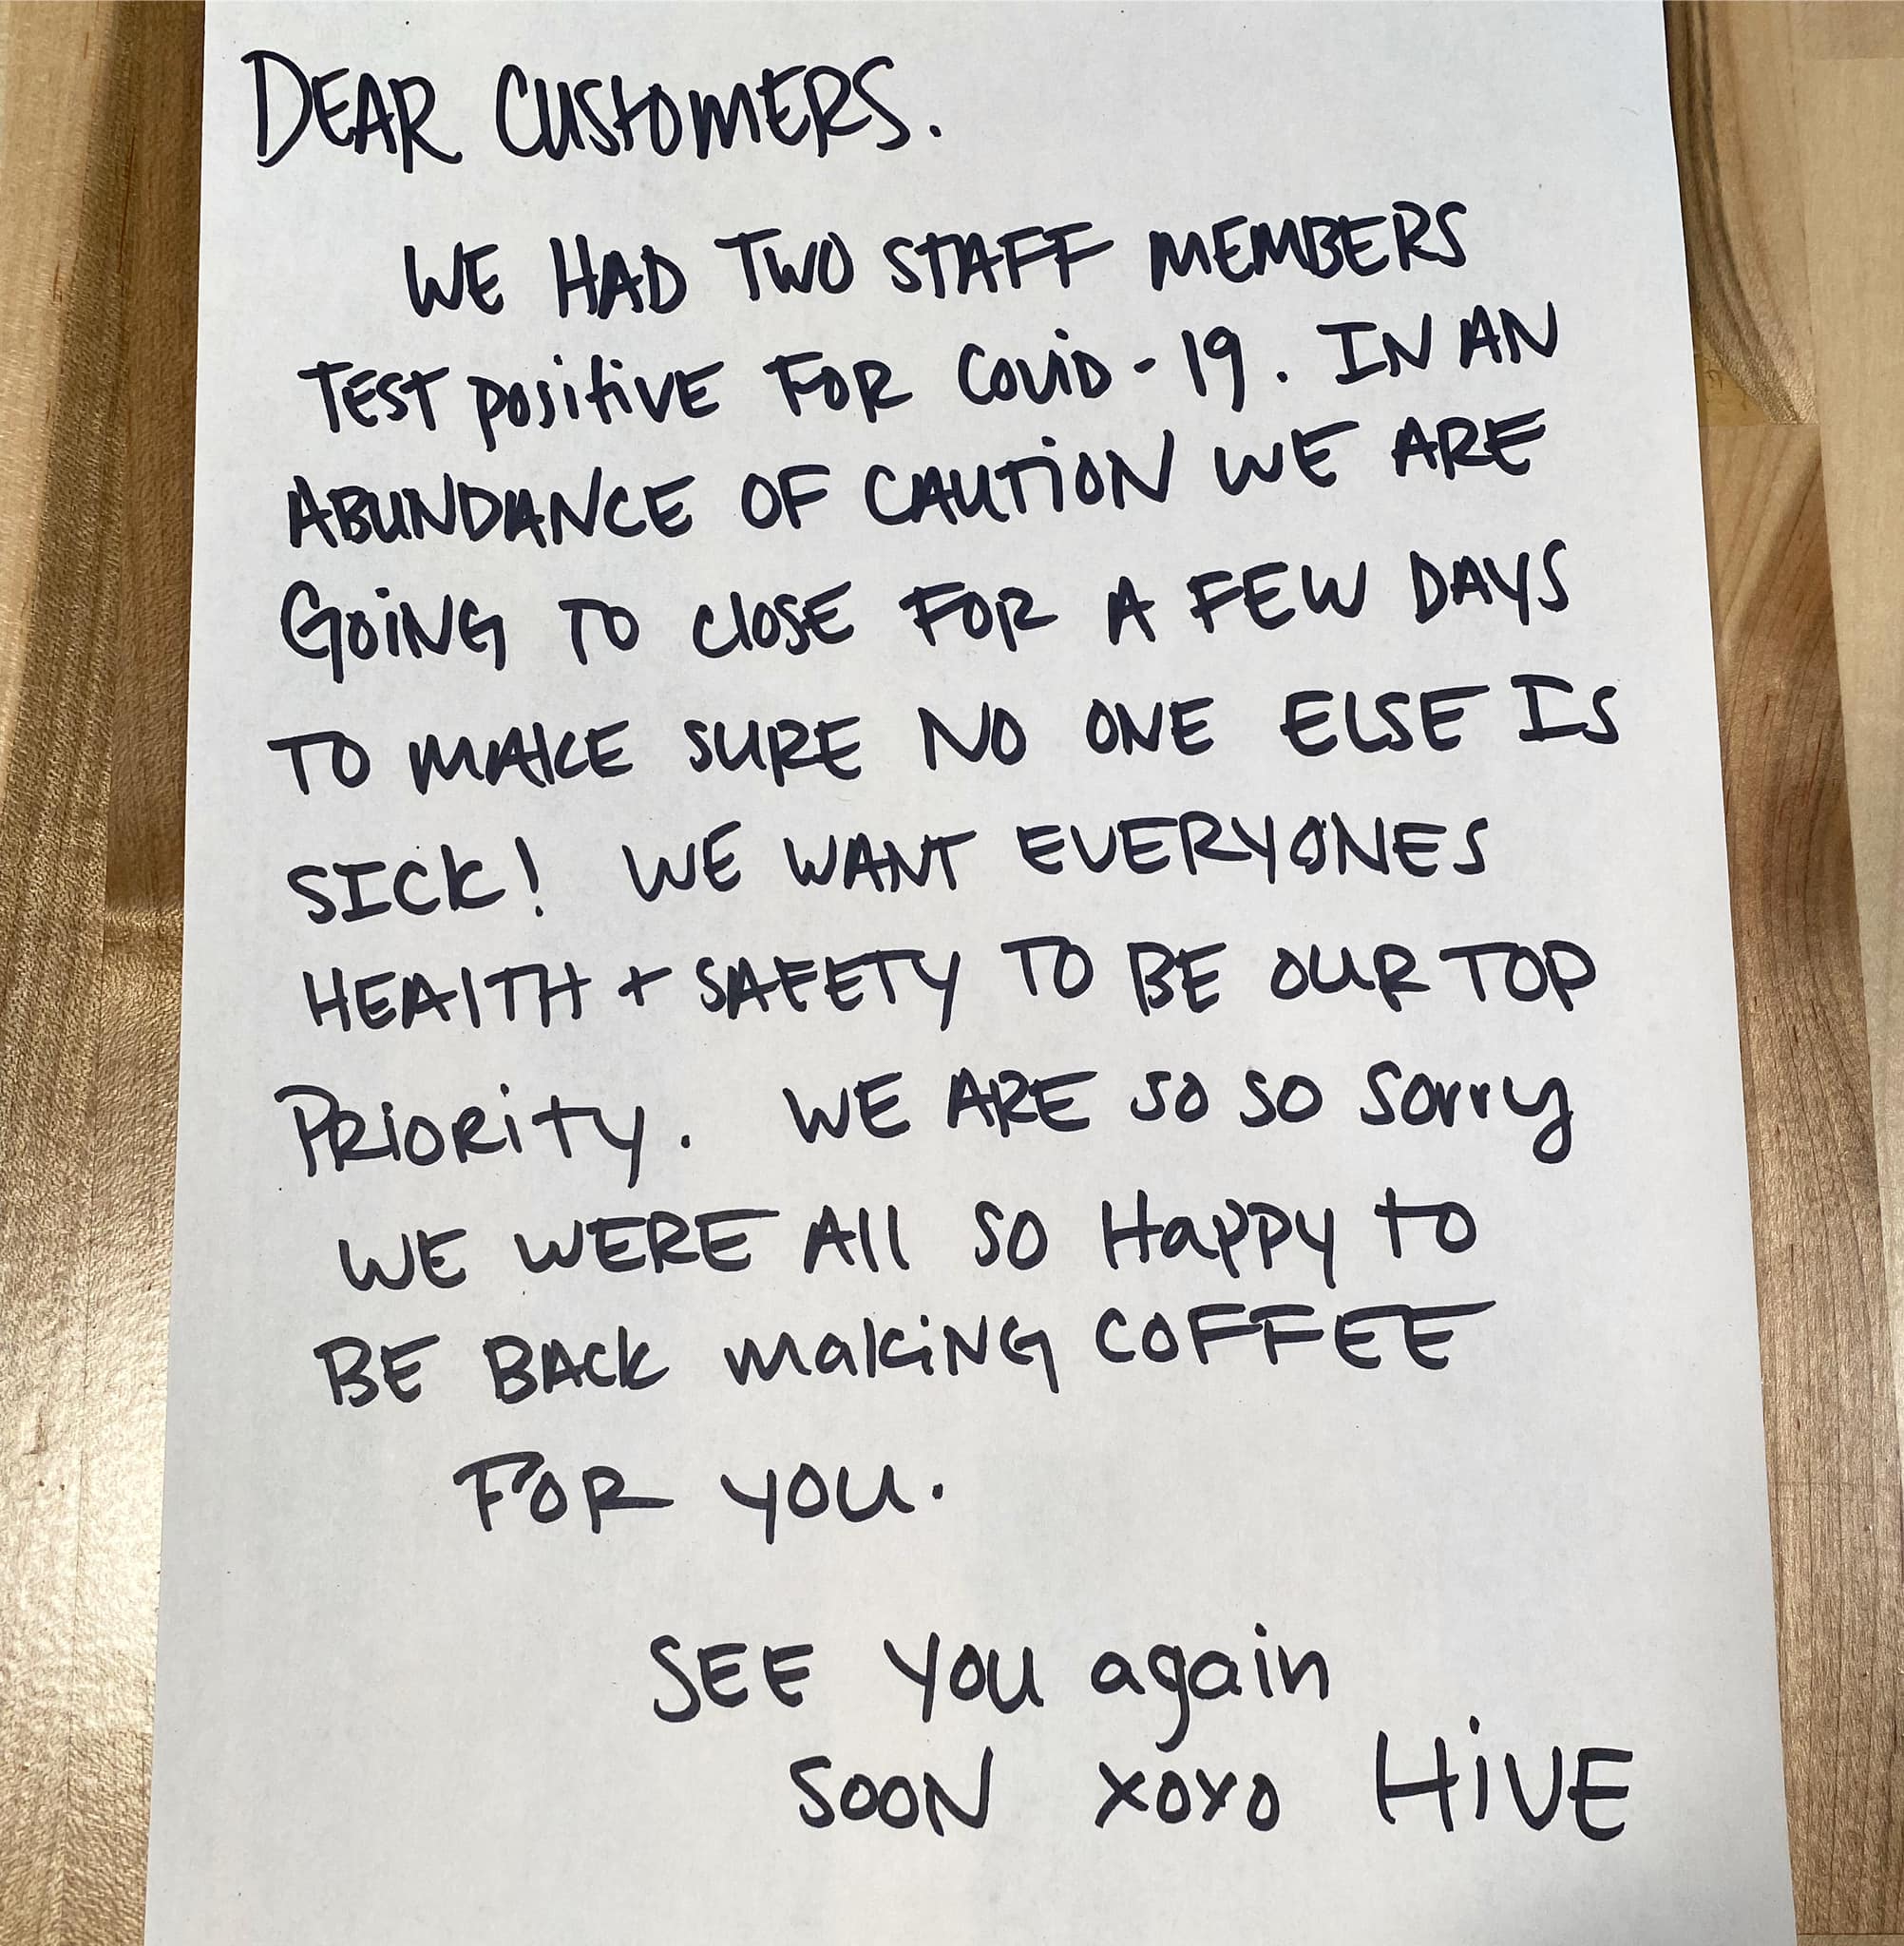 DEAR CUSTOMERS.
WE HAD TWO STAFF MEMBERS
TEST positiVE FOR Covid-19. IN AN
ABUNDANCE OF CAUTiON WE ARE
GOiNG TO ClOSE FOR A FEW DAYS
TO MAKE SURE NO ONE ELSE IS
SICK! WE WANT EVERYONES
HEAlTH + SAFETY TO BE OUR TOP
PRiORity. WE ARE SO SO Sorry
WE WERE All SO Happy to
BE BACK makiNG COFFEE
FOR YOU.
SEE YOU again
SOON xoxo HiVE